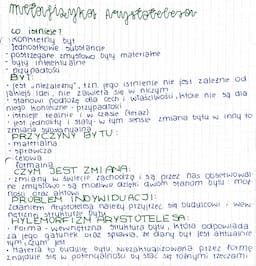 metafizyka arystotelesa
co istnieje?
· konkretny byt
· jednostkowe substancje
· postrzegane zmysłowo byty materialne
· byty intelektualne
· przypadłości
BYT:
· jest „niezależny", tzn. jego istnienie nie jest zależne od
jakiejś idei, nie zawiera się w niczym
· stanowi podłoże dla cech i właściwości, które nie są dla
niego konieczne - przypadłości
· istnieje realnie i w czasie (teraz)
· jest jednolity i stały w tym sensie zmiana bytu w inny to
zmiana substancjalna
PRZYCZYNY BYTU:
· materialna
· sprawcza
· celowa
· formalna
CZYM JEST ZMIANA:
· zmiany w świecie zachodzą i są przez nas obserwowal
ne zmysłowo - są możliwe dzięki dwóm stanom bytu: moż
ność oraz aktowi
PROBLEM INDYWIDUACJI:
zdaniem Arystotelesa należy przyjrzeć się budulcowi i wew
nętrznej strukturze bytu
HYLEMORFIZM ARYSTOTELESA:
· Forma - wewnętrzna struktura bytu, która odpowiada
za jego gatunek oraz sprawia, że dany byt jest aktualnie
tym czym jest
· Materia to budulec bytu, niezaktualizowana przez formę
znajduje się w potencjalności by stać się różnymi rzeczami